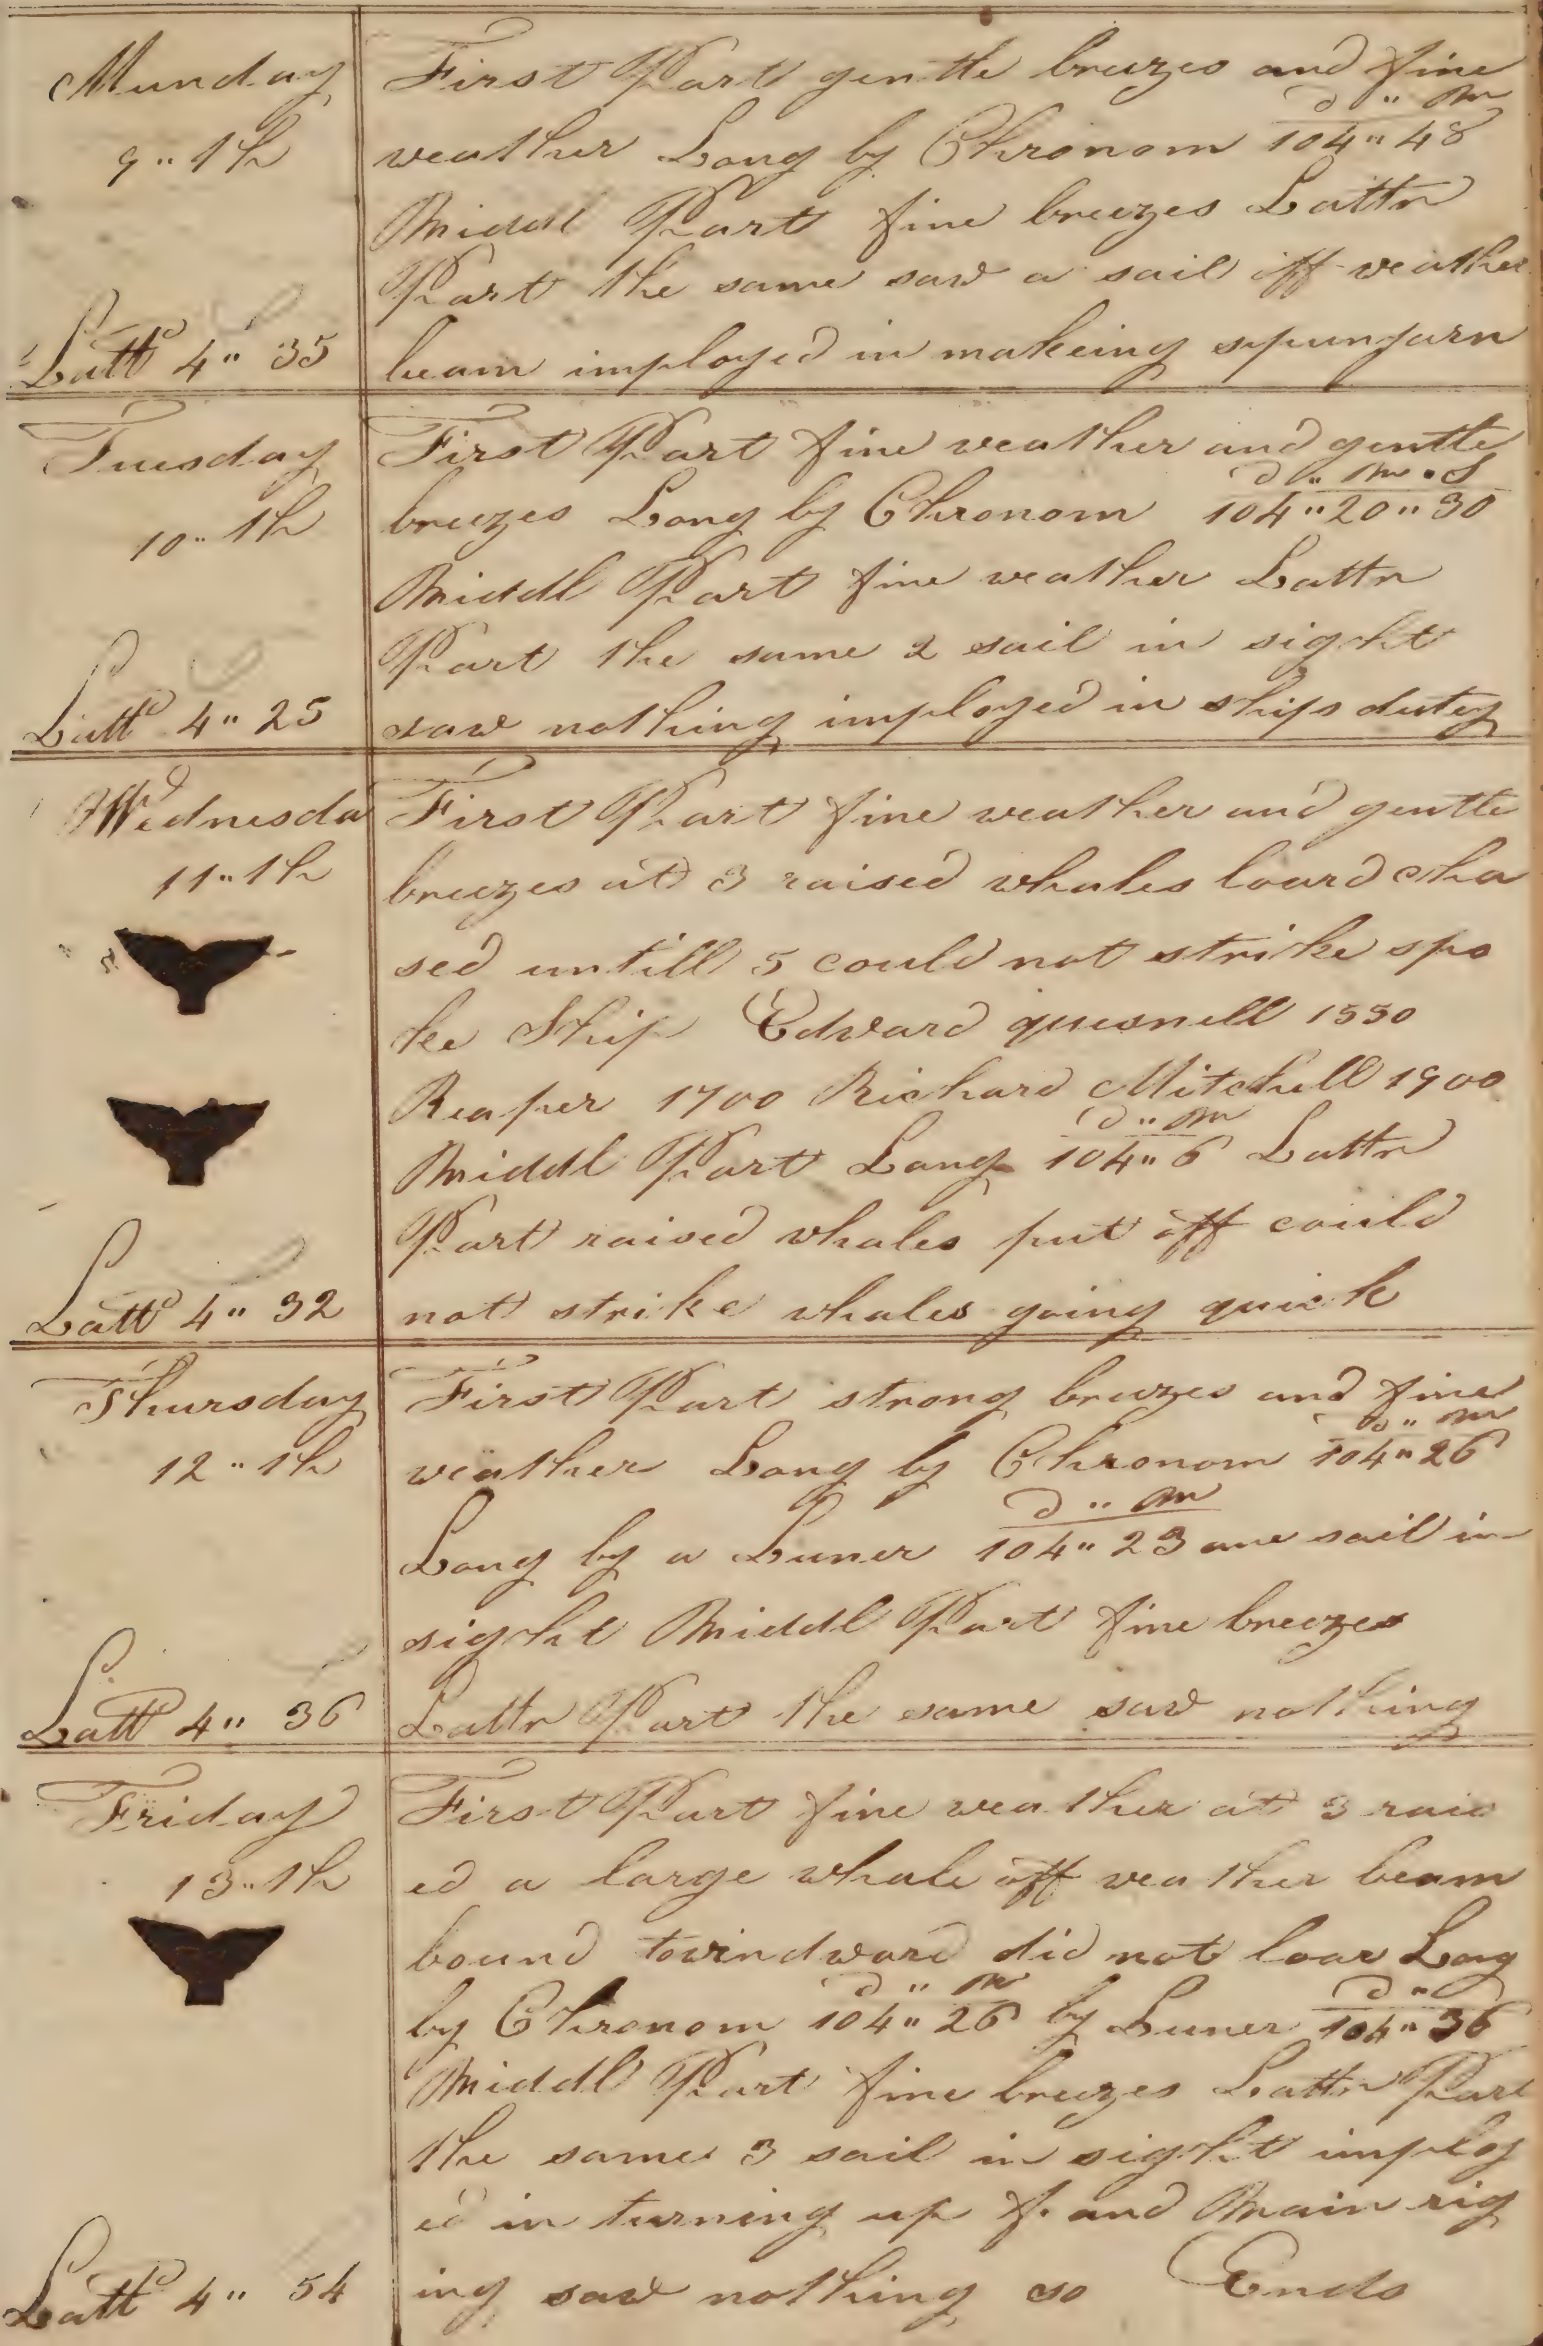 Munday
9 " th
Lattd 4 " 35
First Part gentle breezes and fine
d " m
weather Long by Chronom 104 " 48
Middl Part fine breezes Lattr
Part the same saw a sail off weather
beam imployed in makeing spunyarn
Tuesday
10 " th
Lattd 4 " 25
First Part fine weather and gentle
d " m " s
breezes Long by Chronom 104 " 20 " 30
Middl Part fine weather Lattr
Part the same 2 sail in sight
saw nothing imployed in ships dutey
Wednesda
11 " th
Lattd 4 " 32
First Part fine weather and gentle
breezes at 3 raised whales loard cha
sed untill 5 could not strike spo
ke Ship Edward quesnell 1550
Reaper 1700 Richard Mitchell 1900
d " m
Middl Part Long 104 " 6 Lattr
Part raised whales put off could
not strike whales going quick
Thursday
12 " th
Lattd 4 " 36
First Part strong breezes and fine
d " m
weather Long by Chronom 104 " 26
d " m
Long by a Luner 104 " 23 one sail in
sight Middl Part fine breezes
Lattr Part the same saw nothing
Friday
13 " th
Lattd 4 " 54
First Part fine weather at 3 rais
ed a large whale off weather beam
bound towindward did not loar Long
d " m d "
by Chronom 104 " 26 by Luner 104 " 36
Middl Part fine breezes Lattr Part
the same 3 sail in sight imploy
ed in turning up f. and Main rig
ing saw nothing so Ends